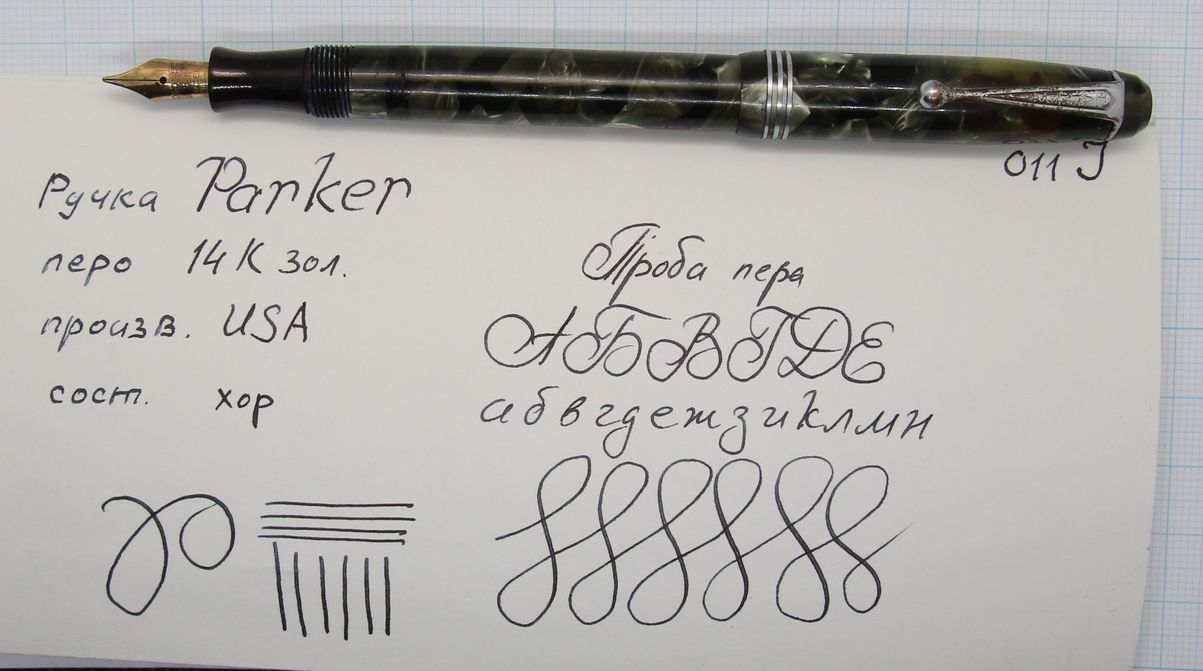 011 J
Ручка Parker
перо 14К зол.
произв. USA
сост. хор
Проба пера
АБВГДЕ
абвгдежзиклмн